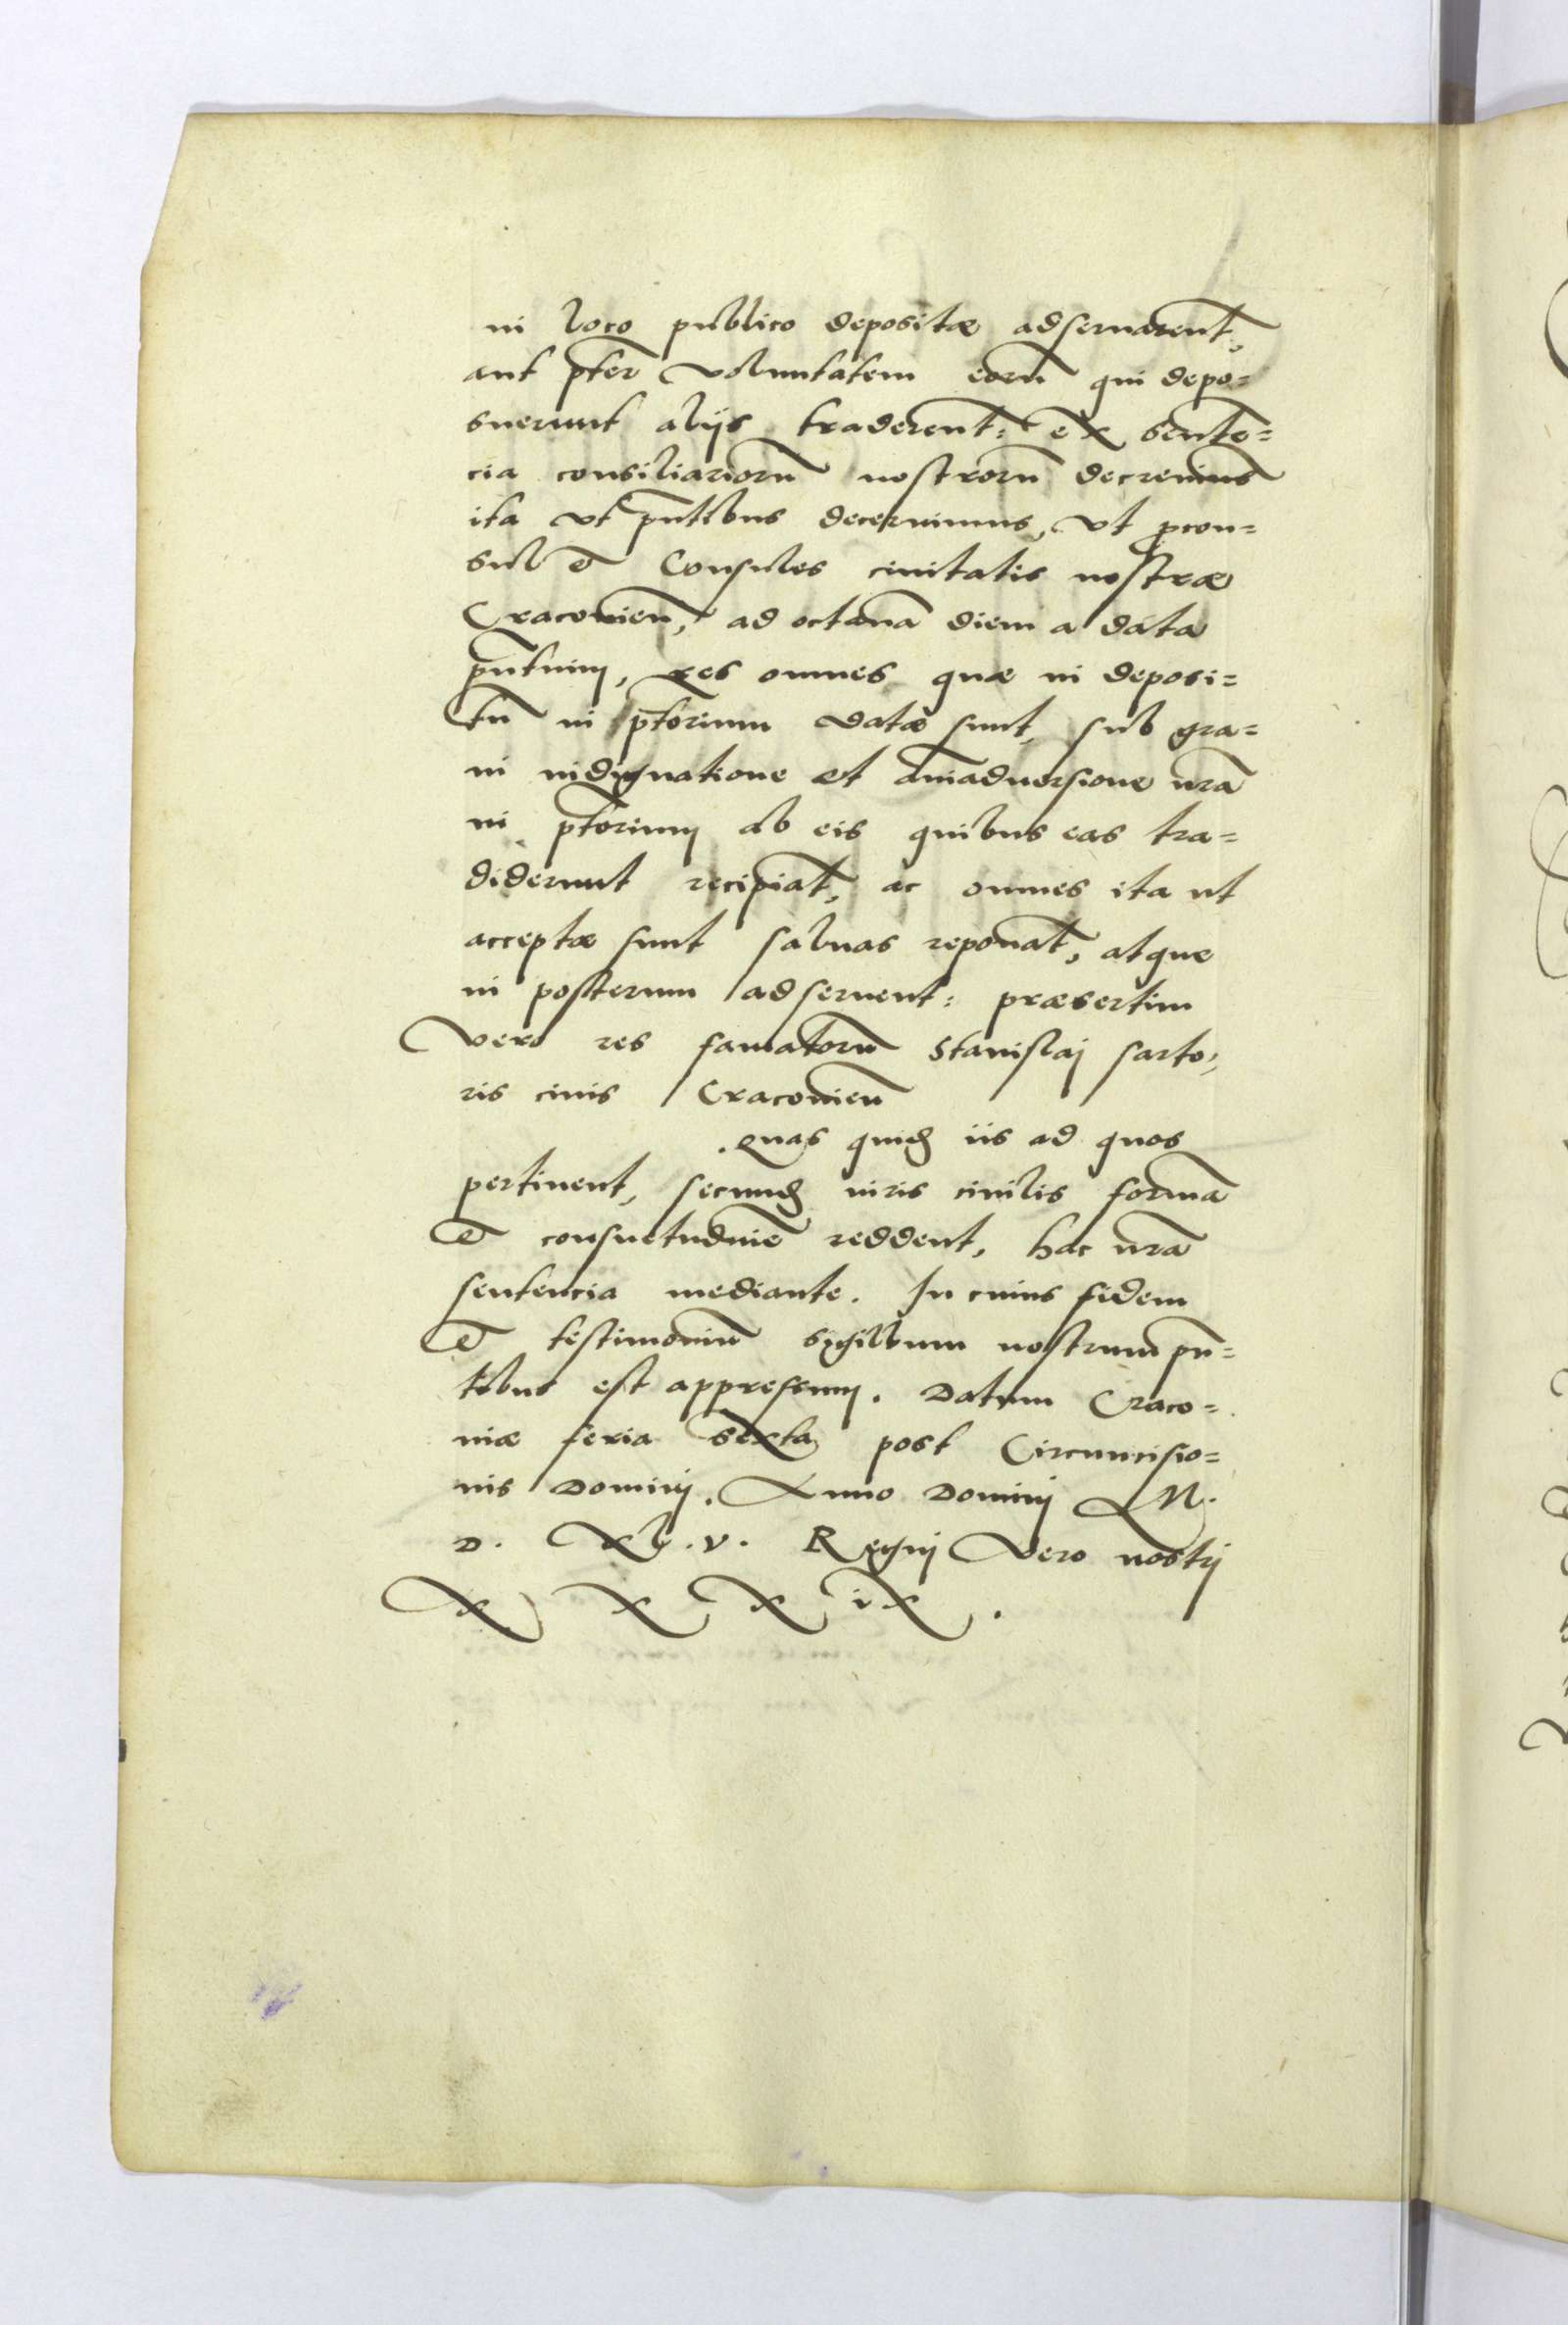 in loco publico depositæ adseruarent͂,
aut p͂ter voluntatem eoru͂ qui depo=
suerunt alijs traderent͂: ex sente͂=
cia consiliarioru͂ nostroru͂ decreuim͂s
ita vt p͂ntibus decernimus, vt pcon=
sul et Consules ciuitatis nostræ
Cracouien͂, ad octaua͂ diem a data
p͂ntium, res omnes quæ in deposi=
tu͂ in p͂torium datæ sunt, sub gra=
ui indignatione et a͂niaduersione n͂ra
in p͂torium ab eis quibus eas tra=
diderunt recipiat͂, ac omnes ita ut
acceptæ sunt saluas reponat͂, atque
in posterum adseruent: præsertim
vero res famatoru͂ Stanislaj sarto,
ris ciuis Cracouien͂
. Quas quid͂ iis ad quos
pertinent, secund͂ iuris ciuilis forma͂
et consuetudine͂ reddent, hac n͂ra
sentencia mediante. In cuius fidem
et testimoniu͂ sigillum nostrum p͂n=
tibus est appressum. Datum Craco=
uiæ feria sexta post Circumcisio=
nis Dominj. Anno Dominj M.
D. XL.V. Regnj vero nostrj
X X X iX .